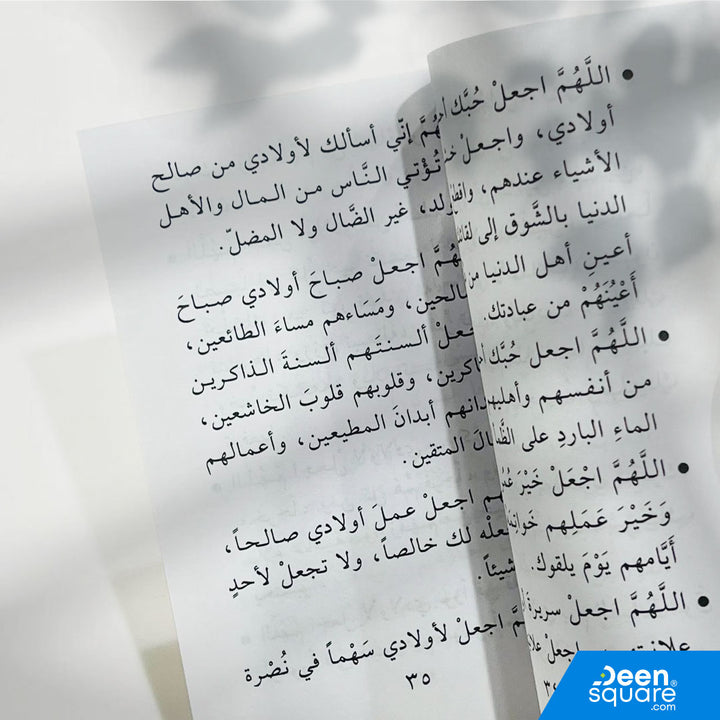 • اللَّهُمَّ اجعلْ حُبَّك
أولادي، واجعلْ
الأشياء عندهم،
الدنيا بالشَّوق إلى
أعينِ أهل الدنيا
أَعْيُنَهُمْ من عبادتك.
• اللَّهُمَّ اجعل حُبَّك
من أنفسهم وأهليهم
الماءِ الباردِ على
• اللَّهُمَّ اجْعَلْ خَيْرَ
وَخَيْرَ عَمَلِهم
أَيَّامهم يَوْمَ يلقوك.
• اللَّهُمَّ اجعلْ سريرة
إنّي أسألك لأولادي من صالح
تُؤْتي النَّاس من المال والأهل
غير الضَّال ولا المضلّ.
اجعلْ صباحَ أولادي صباحَ
ومَسَاءهم مساءَ الطائعين،
ألسنتَهم ألسنةَ الذاكرين
وقلوبهم قلوبَ الخاشعين،
أبدانَ المطيعين، وأعمالهم
المتقين.
اجعلْ عملَ أولادي صالحاً،
لك خالصاً، ولا تجعلْ لأحدٍ
شيئاً.
اجعلْ لأولادي سَهْماً في نُصْرة
٣٥
Deen
square
.com